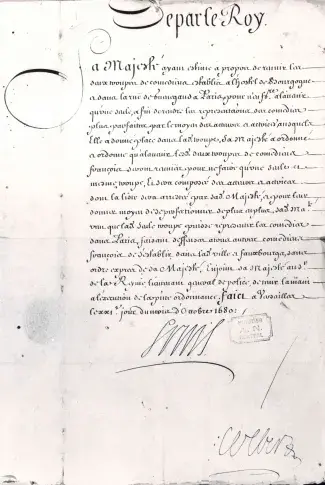 De par le Roy.
Sa Majesté ayant estimé a propos de reunir les
deux troupes de comediens establis a l'hostel de Bourgogne
et dans la rue de Guenegaud a Paris, pour n'en faire a l'avenir
qu'une seule, afin de rendre les representations des comedies
plus parfaites par le moyen des acteurs et actrices ausquels
Elle a donné place dans lad. troupe, Sa Majesté a ordonné
et ordonne qu'a l'avenir les deux troupes de comediens
françois seront reunies pour ne faire qu'une seule et
mesme troupe, et sera composée des acteurs et actrices
dont la liste sera arrestée par Sad. Majesté, et pour leur
donner moyen de se perfectionner de plus en plus, Sad. Ma.té
veut que lad. seule troupe puisse representer les comedies
dans Paris, faisant deffenses a tous autres comediens
françois de s'establir dans lad. ville et fauxbourgs, sans
ordre exprez de Sa Majesté. Enjoint Sa Majesté au S.
de la Reynie lieutenant general de police, de tenir la main
a l'execution de la pnte ordonnance. Faict a Versailles
le xxi.e jour du mois d'Octobre 1680.
Louis
Colbert